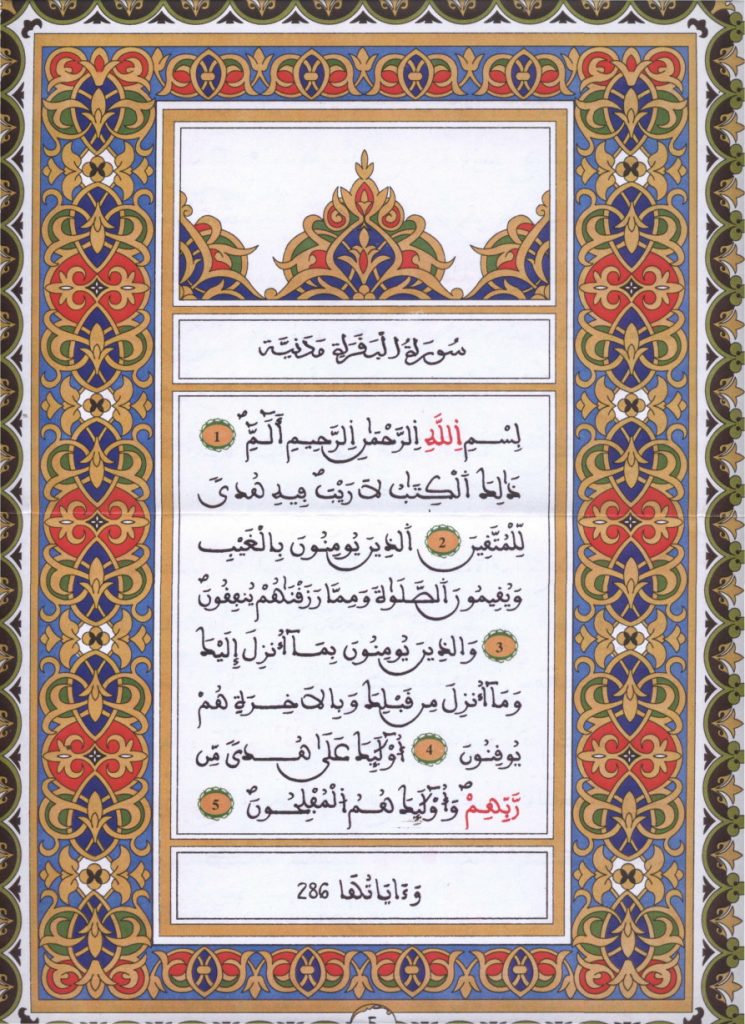 سُورَةُ الْبَقَرَةِ مَدَنِيَّة
بِسْمِ اِللَّهِ اِلرَّحْمَٰنِ اِلرَّحِيمِ أَلَٓمِّٓۖ 1
ذَٰلِكَ اَلْكِتَٰبُ لَا رَيْبَۖ فِيهِ هُدىٗ
لِّلْمُتَّقِينَ 2 اَلذِينَ يُومِنُونَ بِالْغَيْبِ
وَيُقِيمُونَ اَلصَّلَوٰةَ وَمِمَّا رَزَقْنَٰهُمْ يُنفِقُونَۖ
3 وَالذِينَ يُومِنُونَ بِمَآ أُنزِلَ إِلَيْكَ
وَمَآ أُنزِلَ مِن قَبْلِكَ وَبِالَاخِرَةِ هُمْ
يُوقِنُونَ 4 أُوْلَٰٓئِكَ عَلَىٰ هُدىٗ مِّن
رَّبِّهِمْۖ وَأُوْلَٰٓئِكَ هُمُ اُلْمُفْلِحُونَۖ 5
وَءَايَاتُهَا 286